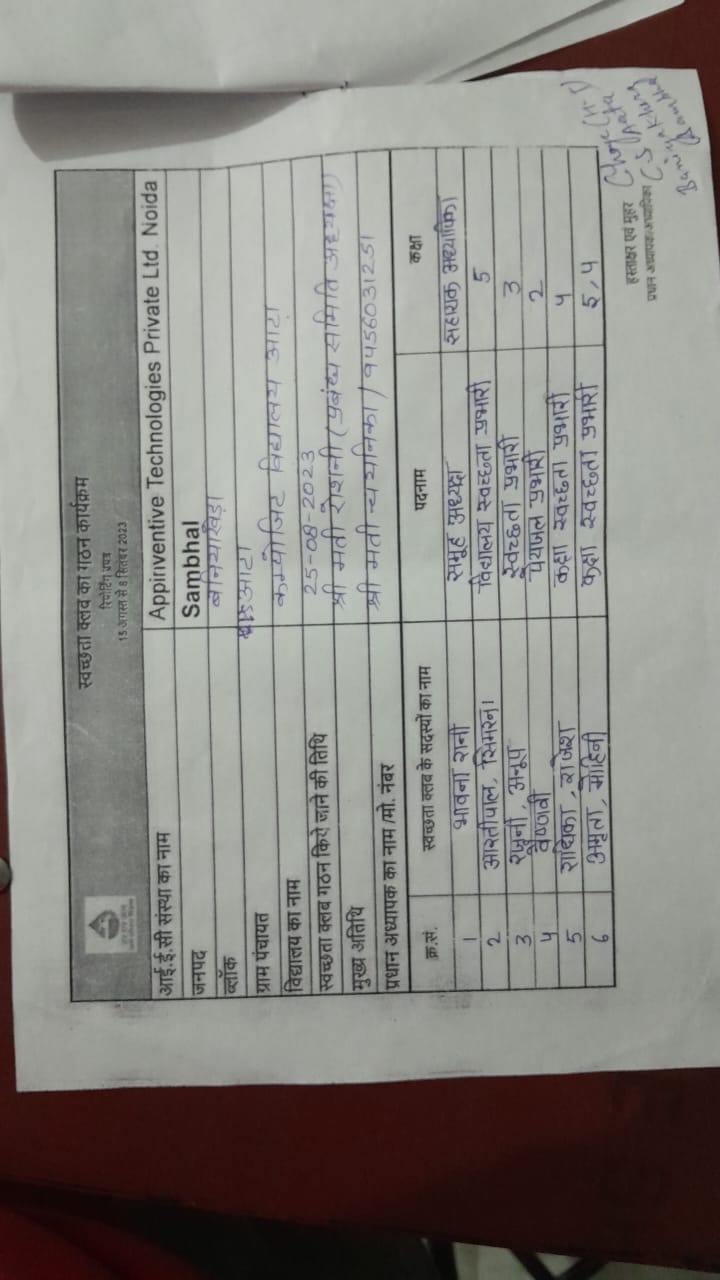 स्वच्छता क्लब का गठन कार्यक्रम
रिपोर्टिंग प्रपत्र
15 अगस्त से 8 सितंबर 2023
आई.ई.सी संस्था का नाम Appinventive Technologies Private Ltd. Noida
जनपद Sambhal
ब्लॉक बनियाखेड़ा
ग्राम पंचायत आटा
विद्यालय का नाम कम्पोजिट विद्यालय आटा
स्वच्छता क्लब गठन किये जाने की तिथि 25-08-2023
मुख्य अतिथि श्री मती रोशनी (प्रबंध समिति अध्यक्ष)
प्रधान अध्यापक का नाम /मो. नंबर श्री मती चयनिका / 9456031251
क्र.सं. स्वच्छता क्लब के सदस्यों का नाम पदनाम कक्षा
1 भावना रानी समूह अध्यक्ष सहायक अध्यापिका
2 आरतीपाल, सिमरन। विद्यालय स्वच्छता प्रभारी 5
3 रजनी, अनूप स्वच्छता प्रभारी 3
4 वैष्णवी पेयजल प्रभारी 2
5 राधिका, राजेश कक्षा स्वच्छता प्रभारी 4
6 अमृता, मोहिनी कक्षा स्वच्छता प्रभारी 5,4
हस्ताक्षर एवं मुहर
प्रधान अध्यापक/अध्यापिका